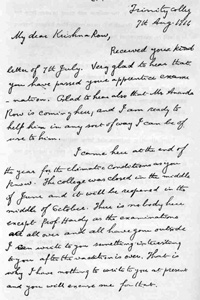 Trinity College
7th Aug. 1916
My dear Krishna Row,
Received your kind
letter of 7th July. Very glad to hear that
you have passed your apprentice exami-
-nation. Glad to hear also that Mr Ananda
Row is coming here; and I am ready to
help him in any sort of way I can be of
use to him.
I came here at the end of
the year for the climatic conditions as you
know. The college was closed in the middle
of June and it will be reopened in the
middle of October. There is nobody here
except Prof. Hardy as the examinations
all over and all have gone outside
I write to you something interesting
to you after the vacation is over. That is
why I have nothing to write to you at present
and you will excuse me for that.